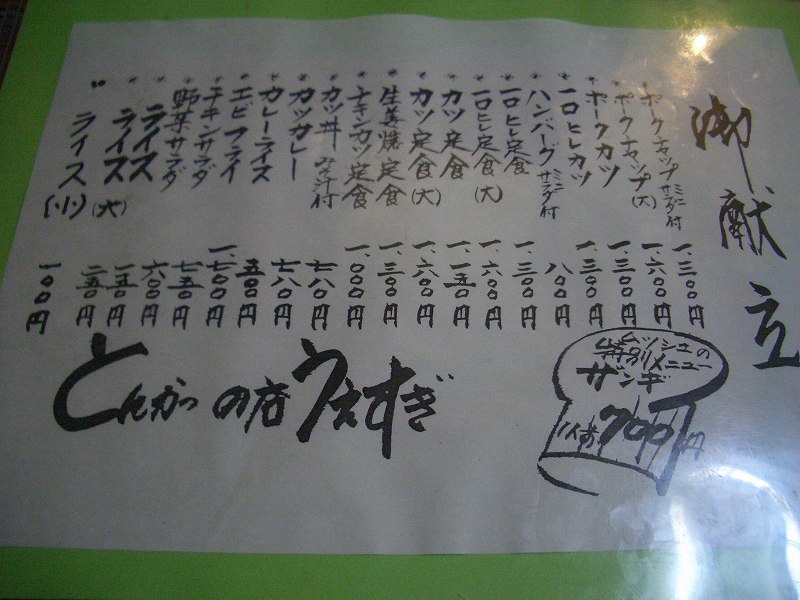 御献立
ポークチャップ ミニサラダ付 一、三〇〇円
ポークチャップ(大) 一、六〇〇円
ポークカツ 一、三〇〇円
一口ヒレカツ 一、三〇〇円
ハンバーグ ミニサラダ付 八〇〇円
一口ヒレ定食 一、三〇〇円
一口ヒレ定食(大) 一、六〇〇円
カツ定食 一、一五〇円
カツ定食(大) 一、六〇〇円
生姜焼定食 一、三〇〇円
チキンカツ定食 一、〇〇〇円
カツ丼 みそ汁付 七八〇円
カツカレー 七八〇円
カレーライス 五〇〇円
エビフライ 一、七〇〇円
チキンサラダ 七五〇円
野菜サラダ 六〇〇円
ライス 一五〇円
ライス(大) 二五〇円
ライス(小) 一〇〇円
ムッシュの
特別メニュー
ザンギ
1人前 700円
とんかつの店 うえすぎ